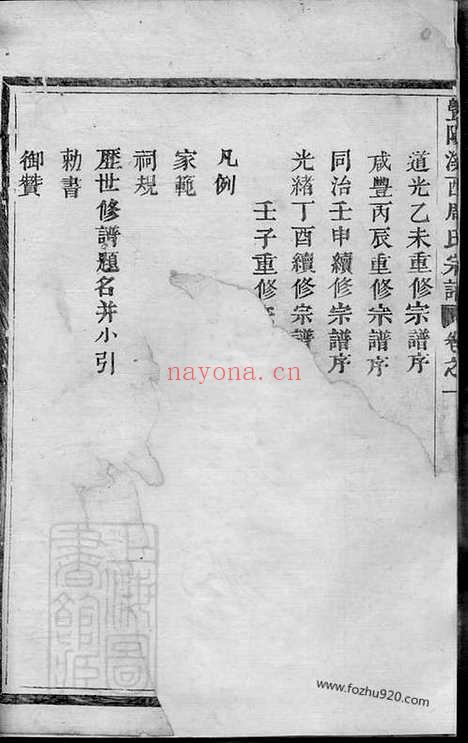 暨陽漢西周氏宗譜 卷之一
道光乙未重修宗譜序
咸豐丙辰重修宗譜序
同治壬申續修宗譜序
光緒丁酉續修宗譜
壬子重修宗
凡例
家範
祠規
歷世修譜題名并小引
勅書
御贊
nayona.cn
www.fozhu920.com